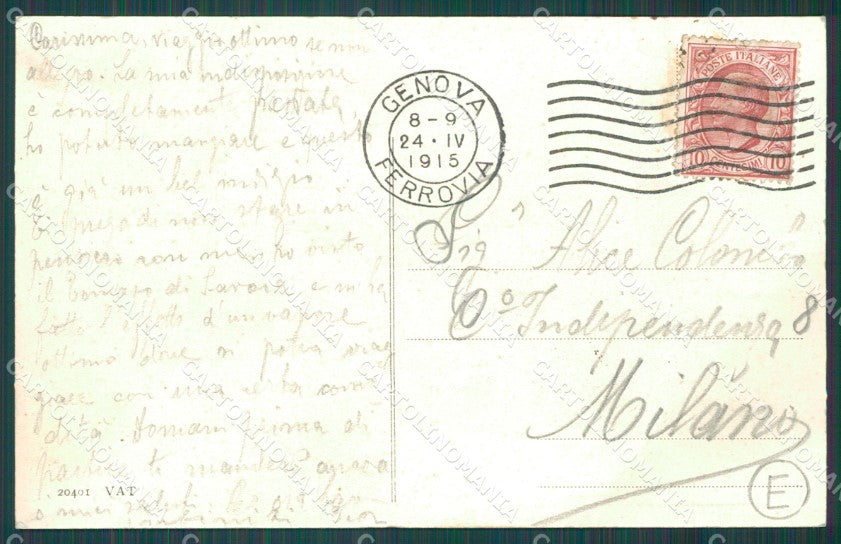 Carissima, viaggio ottimo se non
allegro. La mia indisposizione
è completamente passata,
ho potuto mangiare e questo
è già un bel
di non stare in
pensiero con visto
il Tomaso di Savoia e mi ha
fatto l'effetto d'un vapore
ottimo dove si potrà viag
giare con una certa como
dità. Domani prima di
partire ti manderò ancora
i miei saluti.
20401 VAT
GENOVA
8-9
24·IV
1915
FERROVIA
POSTE ITALIANE
10 CENTESIMI 10
Sig.a Alice
C.o Indipendenza 8
Milano
E
CARTOLINOMANIA